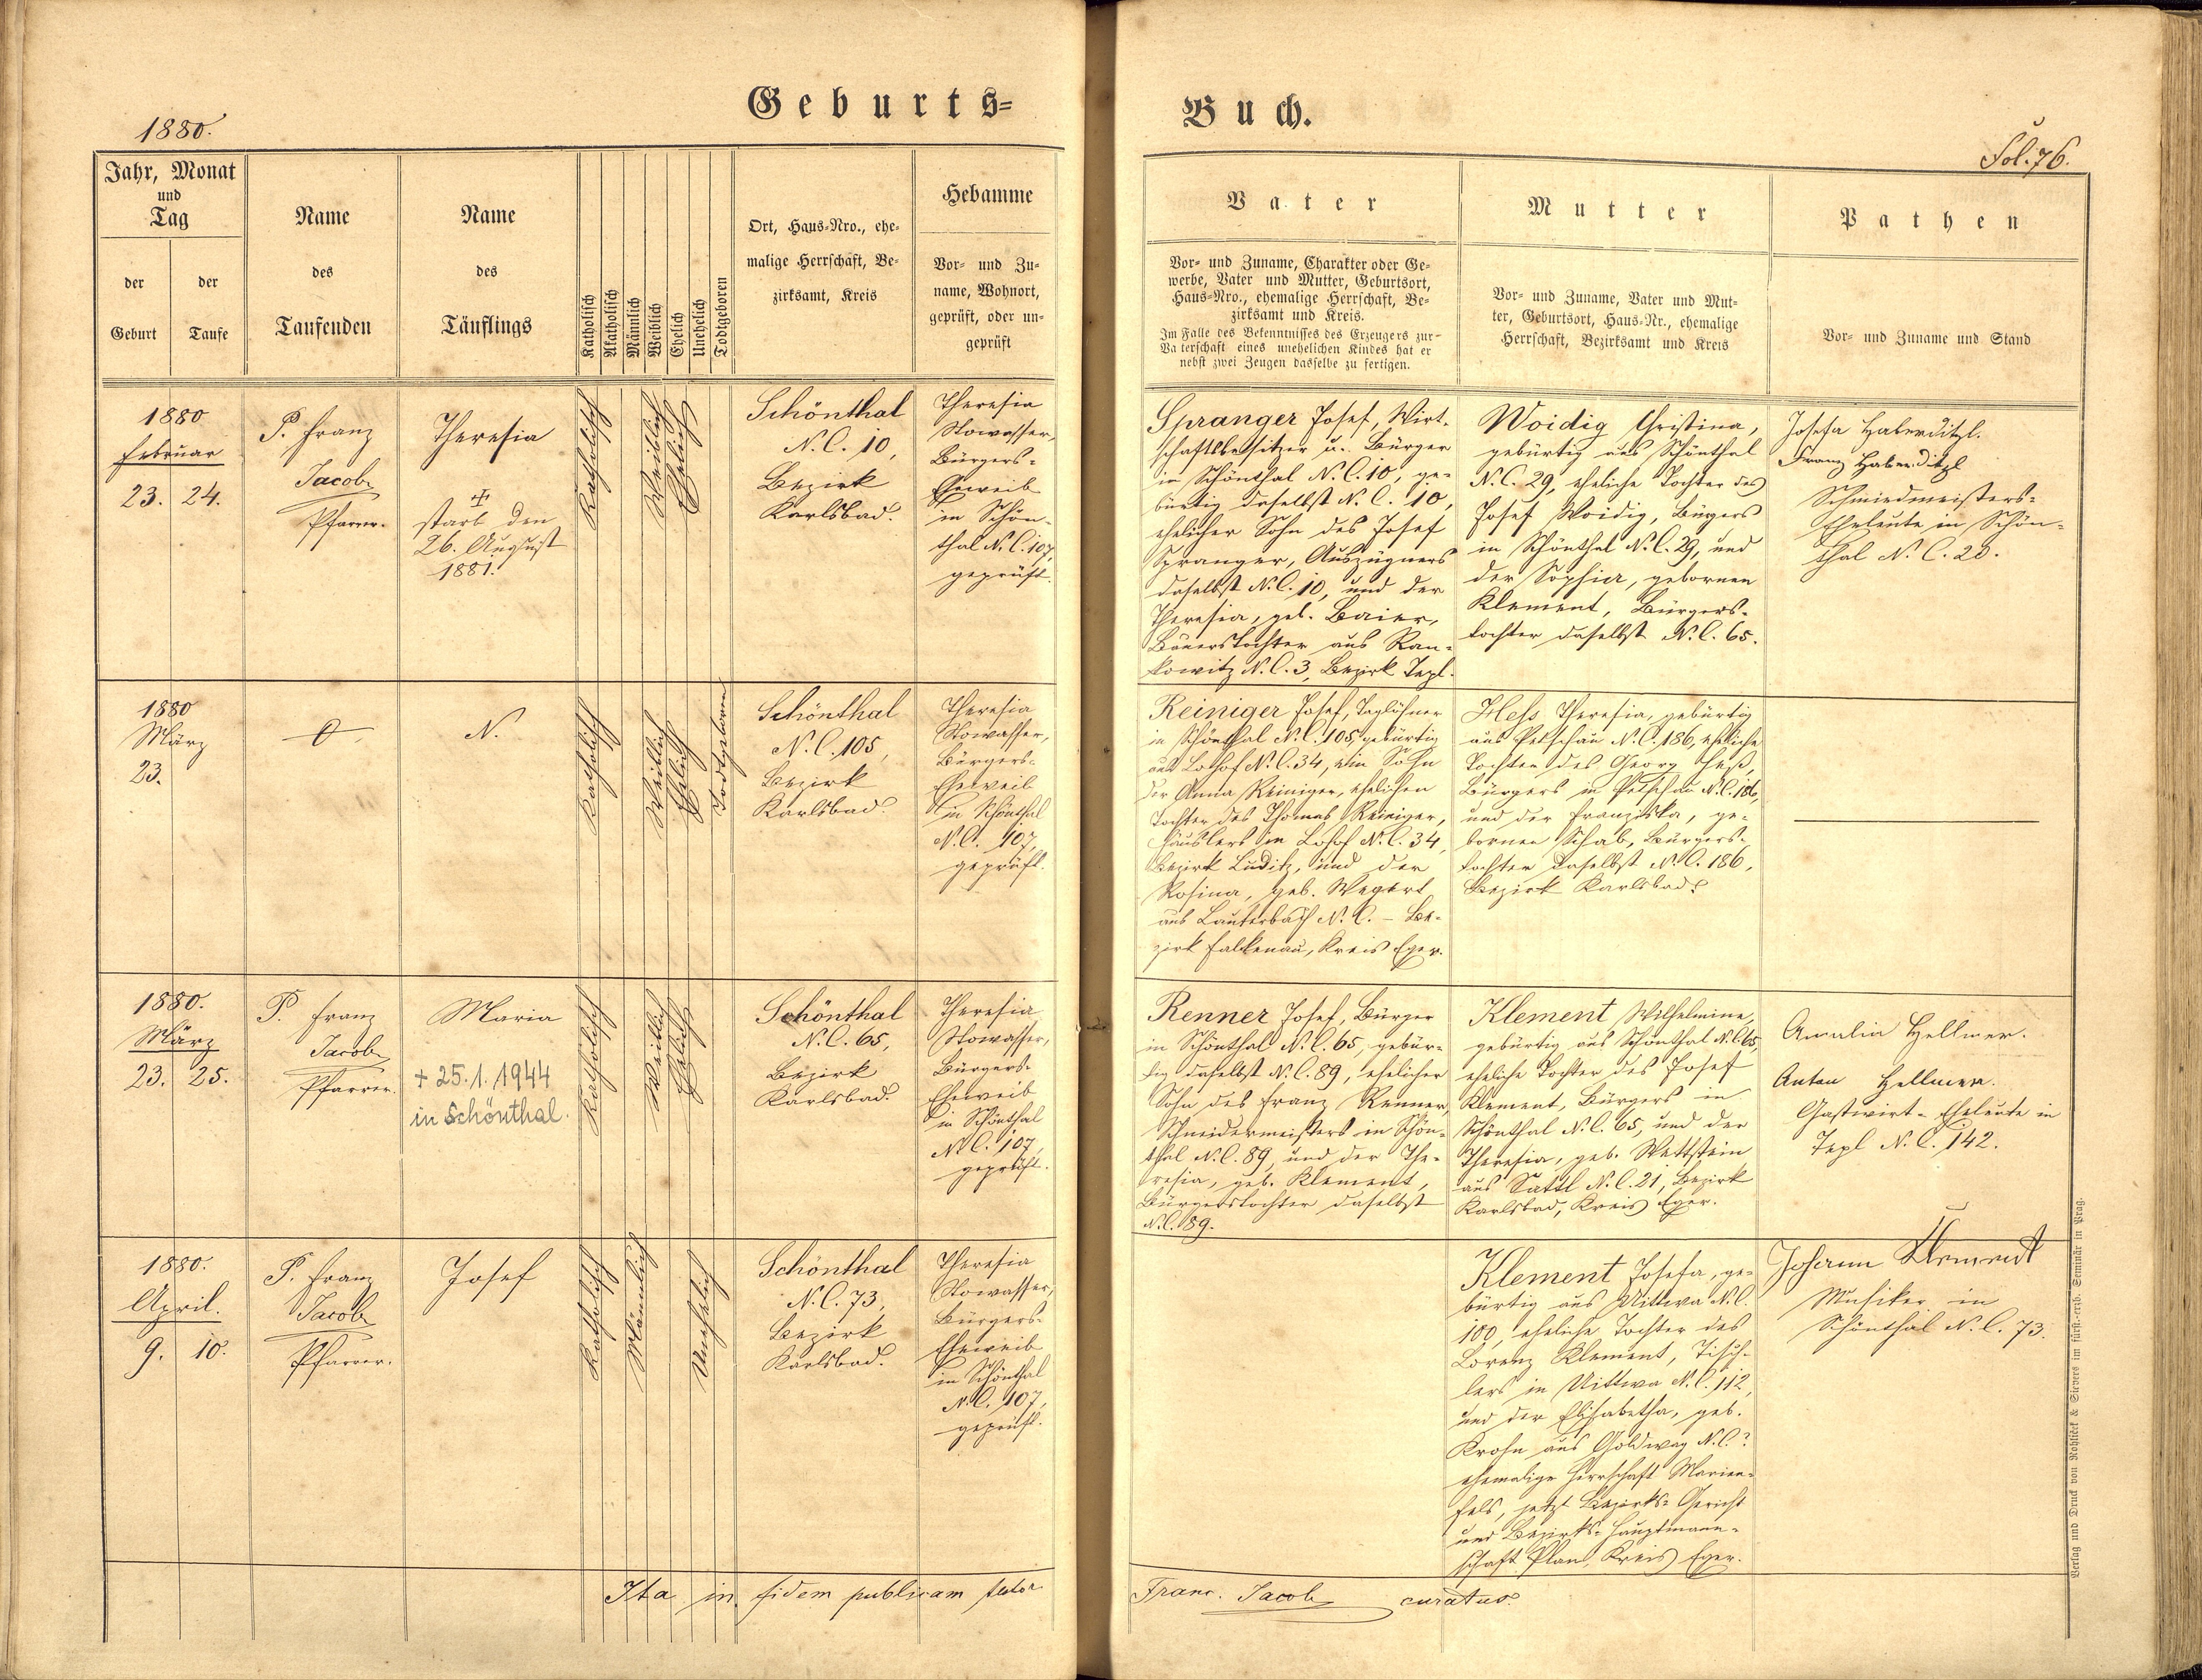 Geburts=
Buch.
1880.
Fol. 76.
Jahr, Monat
und
Tag
der
Geburt
der
Taufe
Name
des
Taufenden
Name
des
Täuflings
Katholisch
Akatholisch
Männlich
Weiblich
Ehelich
Unehelich
Todtgeboren
Ort, Haus=Nro., ehe=
malige Herrschaft, Be=
zirksamt, Kreis
Hebamme
Vor= und Zu=
name, Wohnort,
geprüft, oder un=
geprüft
Vater
Vor= und Zuname, Charakter oder Ge=
werbe, Vater und Mutter, Geburtsort,
Haus=Nro., ehemalige Herrschaft, Be=
zirksamt und Kreis.
Im Falle des Bekenntnisses des Erzeugers zur
Vaterschaft eines unehelichen Kindes hat er
nebst zwei Zeugen dasselbe zu fertigen.
Mutter
Vor= und Zuname, Vater und Mut=
ter, Geburtsort, Haus=Nr., ehemalige
Herrschaft, Bezirksamt und Kreis
Pathen
Vor= und Zuname und Stand
1880
Februar
23. 24.
P. Franz
Jacob
Pfarrer.
Theresia
starb den
26. August
1881.
Katholisch
Weiblich
Ehelich
Schönthal
N. C. 10,
Bezirk
Karlsbad.
Theresia
Stowasser,
Bürgers=
Eheweib
in Schön=
thal N. C. 107,
geprüft.
Spranger Josef, Wirt=
schaftsbesitzer u. Bürger
in Schönthal N. C. 10, ge=
bürtig daselbst N. C. 10,
ehelicher Sohn des Josef
Spranger, Auszügners
daselbst N. C. 10, und der
Theresia, geb. Baier,
Bauerstochter aus Ran=
kowitz N. C. 3, Bezirk Tepl.
Woidig Christina,
gebürtig aus Schönthal
N. C. 29, eheliche Tochter des
Josef Woidig, Bürgers
in Schönthal N. C. 29, und
der Sophia, gebornen
Klement, Bürgers=
tochter daselbst N. C. 65.
Josefa Haberditzl.
Franz Haberditzl
Schmiedmeisters=
Eheleute in Schön=
thal N. C. 20.
1880
März
23.
N.
Katholisch
Weiblich
Ehelich
Todtgeboren
Schönthal
N. C. 105,
Bezirk
Karlsbad.
Theresia
Stowasser,
Bürgers=
Eheweib
in Schönthal
N. C. 107,
geprüft.
Reiniger Josef, Taglöhner
in Schönthal N. C. 105, gebürtig
aus Lohof N. C. 34, ein Sohn
der Anna Reiniger, ehelichen
Tochter des Thomas Reiniger,
Häuslers in Lohof N. C. 34,
Bezirk Luditz, und der
Rosina, geb. Wegert
aus Lauterbach N. C. – Be=
zirk Falkenau, Kreis Eger.
Hess Theresia, gebürtig
aus Petschau N. C. 186, eheliche
Tochter des Georg Heß,
Bürgers in Petschau N. C. 186,
und der Franziska, ge=
bornen Schab, Bürgers=
tochter daselbst N. C. 186,
Bezirk Karlsbad.
1880.
März
23. 25.
P. Franz
Jacob
Pfarrer.
Maria
+ 25.1.1944
in Schönthal.
Katholisch
Weiblich
Ehelich
Schönthal
N. C. 65,
Bezirk
Karlsbad.
Theresia
Stowasser,
Bürgers=
Eheweib
in Schönthal
N. C. 107,
geprüft.
Renner Josef, Bürger
in Schönthal N. C. 65, gebür=
tig daselbst N. C. 89, ehelicher
Sohn des Franz Renner,
Schneidermeisters in Schön=
thal N. C. 89, und der The=
resia, geb. Klement,
Bürgerstochter daselbst
N. C. 89.
Klement Wilhelmine,
gebürtig aus Schönthal N. C. 65,
eheliche Tochter des Josef
Klement, Bürgers in
Schönthal N. C. 65, und der
Theresia, geb. Wettstein
aus Sattl N. C. 21, Bezirk
Karlsbad, Kreis Eger.
Amalia Hellmer.
Anton Hellmer.
Gastwirt=Eheleute in
Tepl N. C. 142.
1880.
April.
9. 10.
P. Franz
Jacob
Pfarrer.
Josef
Katholisch
Männlich
Unehelich
Schönthal
N. C. 73,
Bezirk
Karlsbad.
Theresia
Stowasser,
Bürgers=
Eheweib
in Schönthal
N. C. 107,
geprüft.
Klement Josefa, ge=
bürtig aus Uittwa N. C.
100, eheliche Tochter des
Lorenz Klement, Tisch=
lers in Uittwa N. C. 112,
und der Elisabetha, geb.
Krohn aus Goldwag N. C. ?
ehemalige Herrschaft Marien=
fels, jetzt Bezirks=Gericht
und Bezirks=Hauptmann=
schaft Plan, Kreis Eger.
Johann Klement
Musiker in
Schönthal N. C. 73.
Ita in fidem publicam testor
Franc. Jacob curatus.
Verlag und Druck von Rohliček & Sievers im fürst.=erzb. Seminär in Prag.